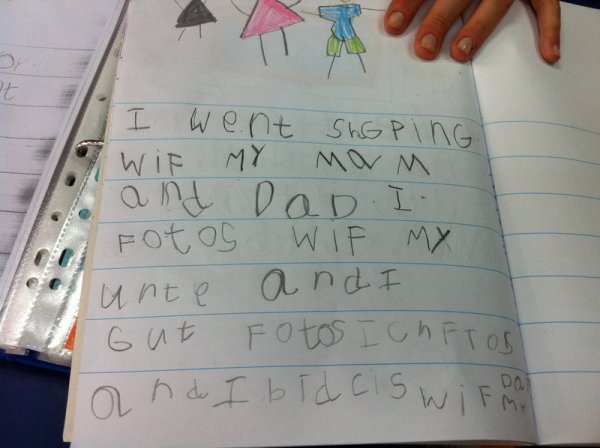 I went shGPiNG
WiF MY MaM
and DaD. I.
FOtOS WiF MY
unte andI
Gut FOtOSICnFTOS
andIbidcis WiF Da
My